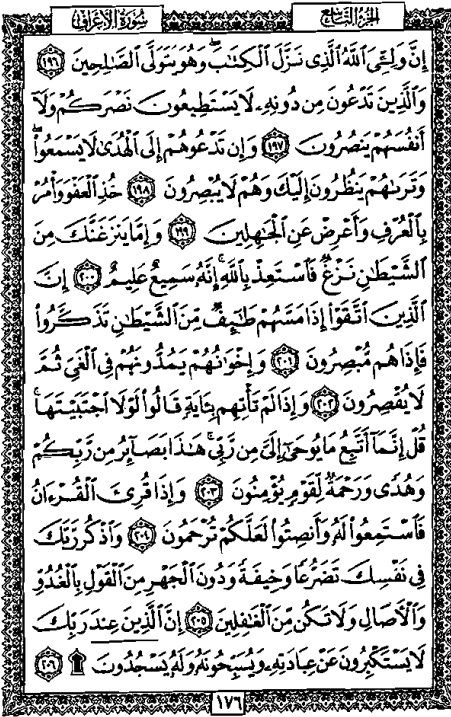 سُورَةُ الأَعْرَافِ
الجُزْءُ التَّاسِعُ
إِنَّ وَلِـِّۧيَ ٱللَّهُ ٱلَّذِى نَزَّلَ ٱلْكِتَٰبَ ۖ وَهُوَ يَتَوَلَّى ٱلصَّٰلِحِينَ ١٩٦
وَٱلَّذِينَ تَدْعُونَ مِن دُونِهِۦ لَا يَسْتَطِيعُونَ نَصْرَكُمْ وَلَآ
أَنفُسَهُمْ يَنصُرُونَ ١٩٧ وَإِن تَدْعُوهُمْ إِلَى ٱلْهُدَىٰ لَا يَسْمَعُوا۟ ۖ
وَتَرَىٰهُمْ يَنظُرُونَ إِلَيْكَ وَهُمْ لَا يُبْصِرُونَ ١٩٨ خُذِ ٱلْعَفْوَ وَأْمُرْ
بِٱلْعُرْفِ وَأَعْرِضْ عَنِ ٱلْجَٰهِلِينَ ١٩٩ وَإِمَّا يَنزَغَنَّكَ مِنَ
ٱلشَّيْطَٰنِ نَزْغٌ فَٱسْتَعِذْ بِٱللَّهِ ۚ إِنَّهُۥ سَمِيعٌ عَلِيمٌ ٢٠٠ إِنَّ
ٱلَّذِينَ ٱتَّقَوْا۟ إِذَا مَسَّهُمْ طَٰٓئِفٌ مِّنَ ٱلشَّيْطَٰنِ تَذَكَّرُوا۟
فَإِذَا هُم مُّبْصِرُونَ ٢٠١ وَإِخْوَٰنُهُمْ يَمُدُّونَهُمْ فِى ٱلْغَىِّ ثُمَّ
لَا يُقْصِرُونَ ٢٠٢ وَإِذَا لَمْ تَأْتِهِم بِـَٔايَةٍ قَالُوا۟ لَوْلَا ٱجْتَبَيْتَهَا ۚ
قُلْ إِنَّمَآ أَتَّبِعُ مَا يُوحَىٰٓ إِلَىَّ مِن رَّبِّى ۚ هَٰذَا بَصَآئِرُ مِن رَّبِّكُمْ
وَهُدًى وَرَحْمَةٌ لِّقَوْمٍ يُؤْمِنُونَ ٢٠٣ وَإِذَا قُرِئَ ٱلْقُرْءَانُ
فَٱسْتَمِعُوا۟ لَهُۥ وَأَنصِتُوا۟ لَعَلَّكُمْ تُرْحَمُونَ ٢٠٤ وَٱذْكُر رَّبَّكَ
فِى نَفْسِكَ تَضَرُّعًا وَخِيفَةً وَدُونَ ٱلْجَهْرِ مِنَ ٱلْقَوْلِ بِٱلْغُدُوِّ
وَٱلْءَاصَالِ وَلَا تَكُن مِّنَ ٱلْغَٰفِلِينَ ٢٠٥ إِنَّ ٱلَّذِينَ عِندَ رَبِّكَ
لَا يَسْتَكْبِرُونَ عَنْ عِبَادَتِهِۦ وَيُسَبِّحُونَهُۥ وَلَهُۥ يَسْجُدُونَ ۩ ٢٠٦
١٧٦